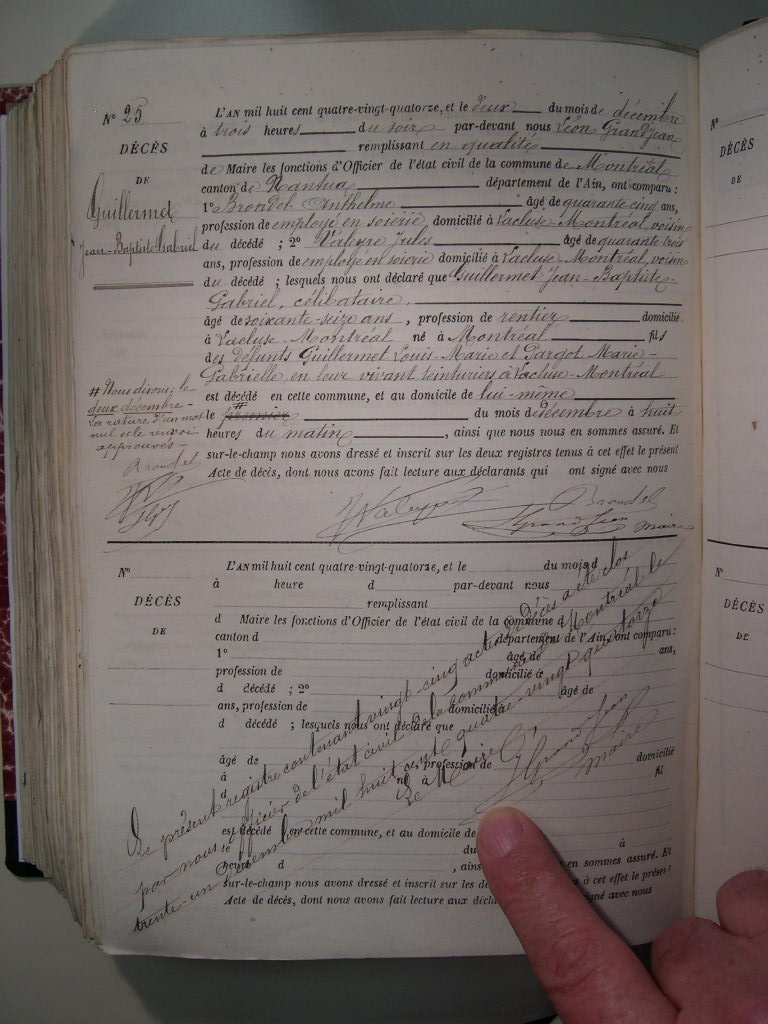 N° 25
DÉCÈS
DE
Guillermet
Jean-Baptiste Gabriel
L'AN mil huit cent quatre-vingt-quatorze, et le deux du mois de décembre
à trois heures du soir par-devant nous Léon Grandjean
remplissant en qualité
de Maire les fonctions d'Officier de l'état civil de la commune de Montréal
canton de Nantua département de l'Ain, ont comparu :
1° Brondel Anthelme âgé de quarante cinq ans,
profession de employé en soierie domicilié à Lacluse-Montréal, voisin
du décédé ; 2° Jules âgé de quarante trois
ans, profession de employé en soierie domicilié à Lacluse-Montréal, voisin
du décédé ; lesquels nous ont déclaré que Guillermet Jean-Baptiste-
Gabriel, célibataire,
âgé de soixante-seize ans, profession de rentier domicilié
à Lacluse-Montréal né à Montréal fils
des défunts Guillermet Louis-Marie et Gargot Marie-
Gabrielle, en leur vivant teinturiers à Lacluse-Montréal
est décédé en cette commune, et au domicile de lui-même
le # premier du mois de décembre à huit
heures du matin, ainsi que nous nous en sommes assuré. Et
sur-le-champ nous avons dressé et inscrit sur les deux registres tenus à cet effet le présent
Acte de décès, dont nous avons fait lecture aux déclarants qui ont signé avec nous
# Nous disons; le
deux décembre-
La rature d'un mot
nul et le renvoi
approuvés-
Brondel
Brondel
Grandjean maire
N°
DÉCÈS
DE
L'AN mil huit cent quatre-vingt-quatorze, et le du mois d
à heure d par-devant nous
remplissant
d Maire les fonctions d'Officier de l'état civil de la commune d
canton d département de l'Ain, ont comparu :
1° âgé de ans,
profession de domicilié à
d décédé ; 2° âgé de
ans, profession de domicilié à
d décédé ; lesquels nous ont déclaré que
âgé de profession de domicilié
à né à fil
d
est décédé en cette commune, et au domicile de
le du à
heure d , ains en sommes assuré. Et
sur-le-champ nous avons dressé et inscrit sur les de à cet effet le présent
Acte de décès, dont nous avons fait lecture aux décla signé avec nous
Le présent registre contenant vingt-cinq actes de décès a été clos
par nous officier de l'état civil de la commune de Montréal le
trente-un décembre mil huit cent quatre-vingt quatorze
Le Maire
Grandjean
maire
N°
DÉCÈS
DE
DÉCÈS
DE